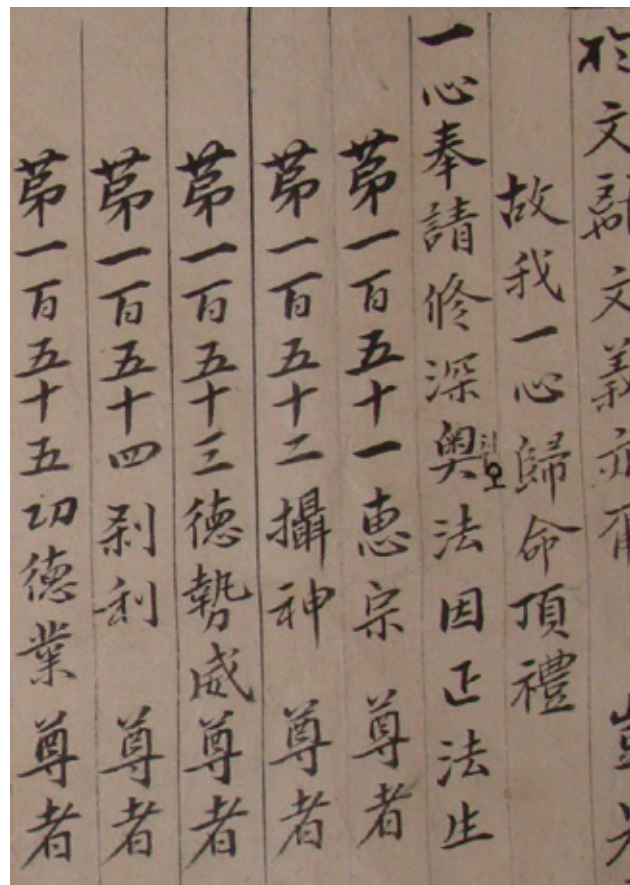 於文辭文義亦爾
故我一心歸命頂禮
一心奉請修深奧法因正法生
오
苐一百五十一惠宗 尊者
苐一百五十二攝神 尊者
苐一百五十三德勢威尊者
苐一百五十四刹利 尊者
苐一百五十五功德業尊者